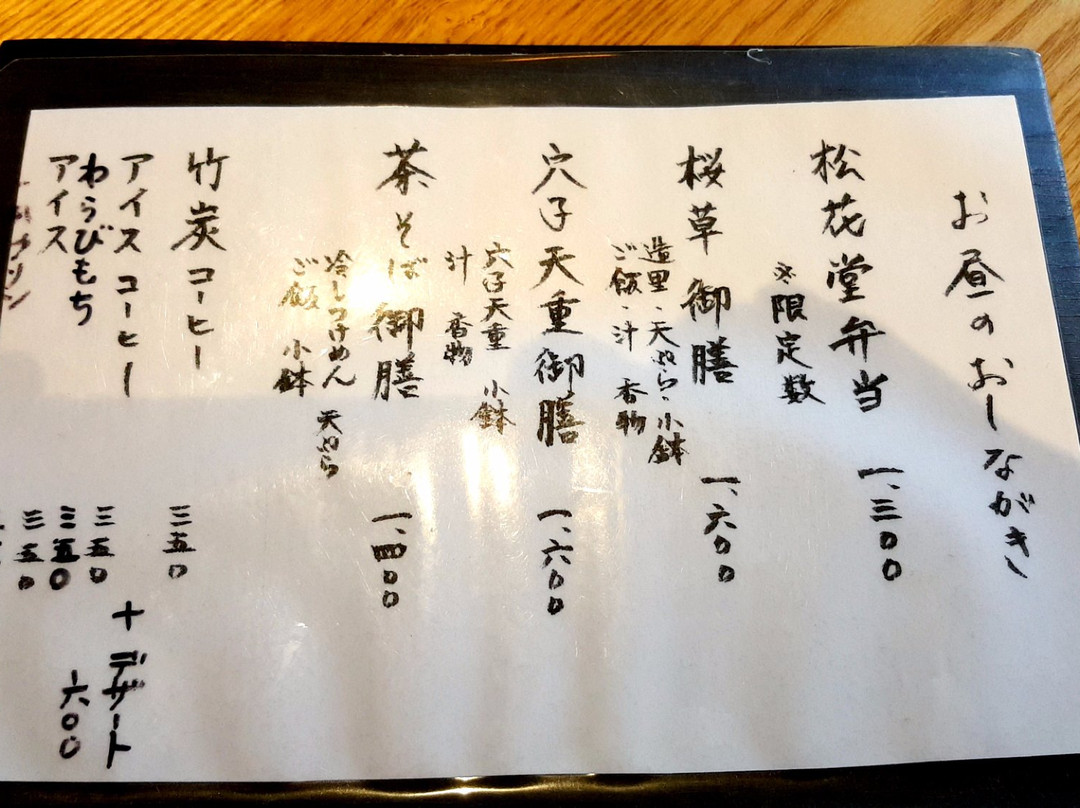 お昼のおしながき
松花堂弁当 一、三〇〇
※限定数
桜草御膳 一、六〇〇
造里・天ぷら・小鉢
ご飯・汁 香物
穴子天重御膳 一、六〇〇
穴子天重 小鉢
汁 香物
茶そば御膳 一、四〇〇
冷しつけめん 天ぷら
ご飯 小鉢
竹炭コーヒー 三五〇
アイスコーヒー 三五〇
わらびもち 三五〇
アイス 三五〇
+デザート
六〇〇